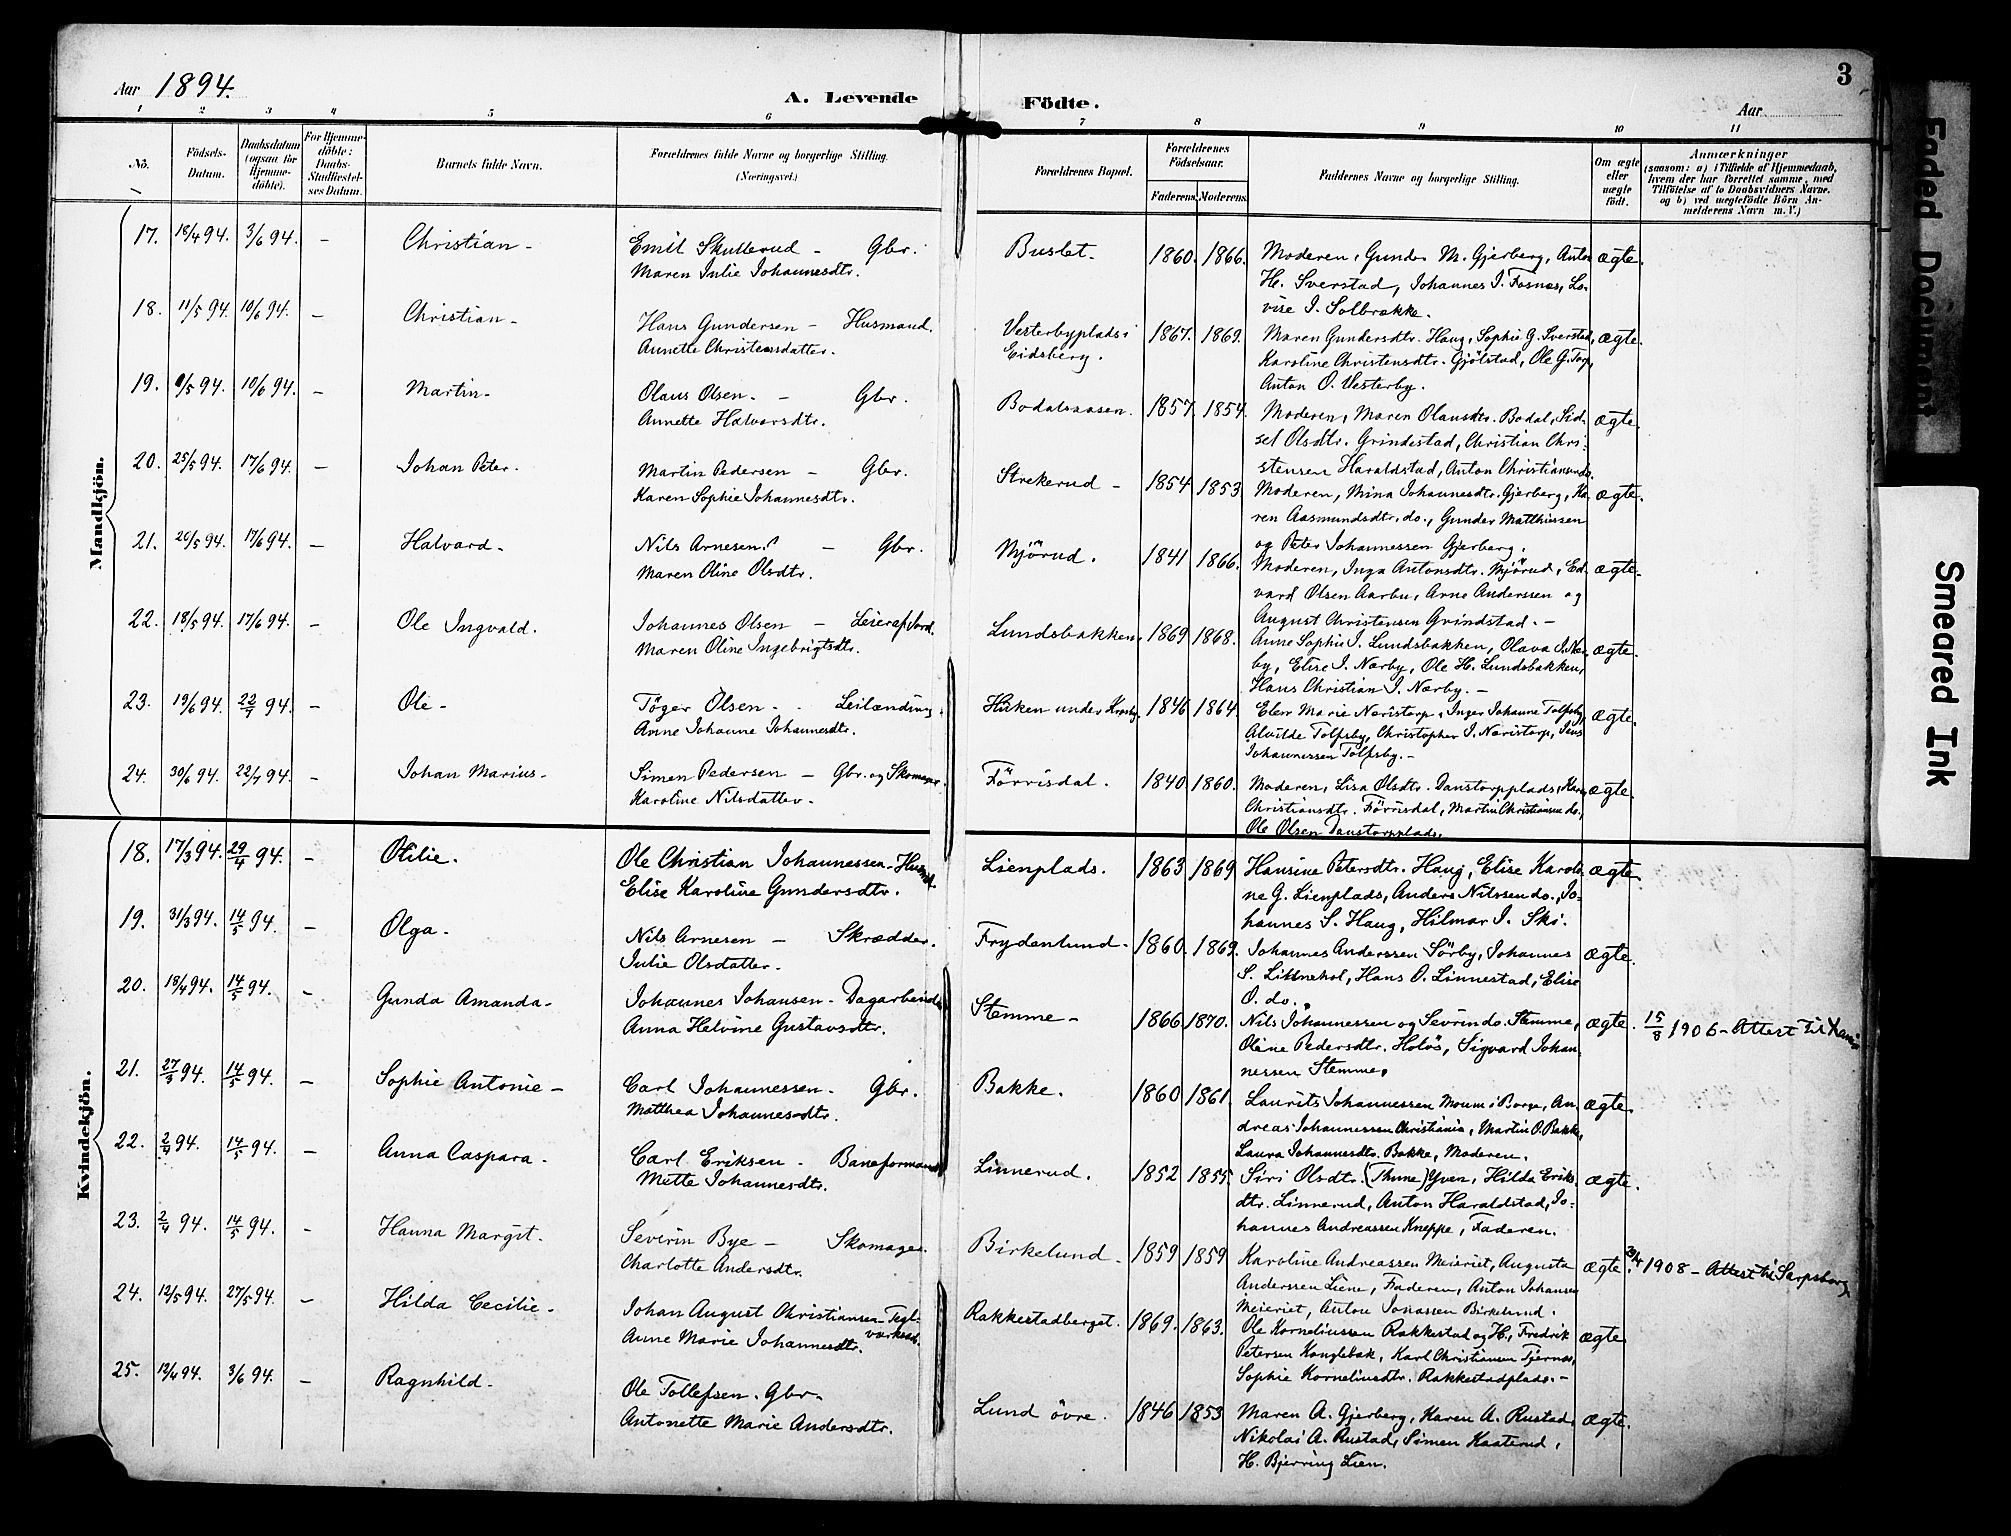 Aar 1894.
A. Levende Födte.
Aar
3
1 2 3 4 5 6 7 8 9 10 11
No.
Födsels-Datum.
Daabsdatum (ogsaa for Hjemmedöbte).
For Hjemmedöbte: Daabs-Stadfæstelses Datum.
Barnets fulde Navn.
Forældrenes fulde Navne og borgerlige Stilling.
(Næringsvei.)
Forældrenes Bopæl.
Forældrenes Födselsaar.
Faderens. Moderens.
Faddernes Navne og borgerlige Stilling.
Om ægte eller uægte födt.
Anmærkninger
(saasom: a) i Tilfælde af Hjemmedaab, hvem der har forrettet samme, med Tilföielse af to Daabsvidners Navne, og b) ved uægtefödte Börn Anmelderens Navn m. V.)
Mandkjön.
17. 18/4 94. 3/6 94. – Christian – Emil Skullerud – Gbr. Buslet. 1860. 1866. Moderen, Gunder M. Gjerberg, Anton ægte.
Maren Julie Johannesdtr. H. Sverstad, Johannes I. Fosnæs, Lo-
vise I. Solbrække.
18. 11/5 94. 10/6 94. – Christian – Hans Gundersen – Husmand. Vesterbyplads i 1867. 1869. Maren Gundersdtr. Haug, Sophie G. Sverstad, ægte.
Annette Christensdatter. Eidsberg. Karoline Christensdtr. Gjölstad, Ole G. Torp,
Anton O. Vesterby.
19. 9/5 94. 10/6 94. – Martin – Olaus Olsen. – Gbr. Bodalsaasen. 1857. 1854. Moderen, Maren Olausdtr. Bodal, Sid- ægte.
Annette Halvorsdtr. sel Olsdtr. Grindestad, Christian Chri-
stensen Haraldstad, Anton Christiansen do.
20. 25/5 94. 17/6 94. – Johan Peter. Martin Pedersen – Gbr. Strekerud – 1854 1853. Moderen, Mina Johannesdtr. Gjerberg, Ka- ægte.
Karen Sophie Johannesdtr. ren Aasmundsdtr. do., Gunder Matthissen
og Peter Johannessen Gjerberg.
21. 26/5 94. 17/6 94. – Halvard – Nils Arnesen. – Gbr. Mjörud. 1841 1866. Moderen, Inga Antonsdtr. Mjörud, Ed- ægte.
Maren Oline Olsdtr. vard Olsen Aarbu, Arne Anderssen og
August Christensen Grindstad. –
22. 18/5 94. 17/6 94. – Ole Ingvald. Johannes Olsen – Leier af Jord. Lundsbakken. 1869 1868. Anne Sophie I. Lundsbakken, Olava I. Nær- ægte.
Maren Oline Ingebrigtsdtr. by, Elise I. Nærby, Ole H. Lundsbakken,
Hans Christian I. Nærby. –
23. 19/6 94. 22/7 94. – Ole – Töger Olsen – Leilænding. under 1846 1864. Elen Marie Næristorp, Inger Johanne Tolfsby, ægte.
Anne Johanne Johannesdtr. Alvilde Tolfsby, Christopher I. Næristorp, Jens
Johannessen Tolfsby. –
24. 30/6 94. 22/7 94. – Johan Marius – Simen Pedersen – Gbr. og Skomager. Förrisdal. 1840. 1860. Moderen, Lisa Olsdtr. Danstorpplads, ægte.
Karoline Nilsdatter. Christiansdtr. Förrisdal, Martin Christiansen do.
Ole Olsen Danstorpplads.
Kvindekjön.
18. 17/3 94. 29/4 94. – Otilie. Ole Christian Johannessen – Husmd. Lienplads. 1863 1869 Hansine Petersdtr. Haug, Elise Karoli- ægte.
Elise Karoline Gundersdtr. ne G. Lienplads, Anders Nilssen do., Jo-
hannes S. Haug, Hilmar I. Ski.
19. 31/3 94. 14/5 94. – Olga. Nils Arnesen – Skrædder. Frydenlund. 1860. 1869. Johannes Anderssen Sörby, Johannes ægte.
Julie Olsdatter. S. Hans O. Linnestad, Elise
O. do.
20. 18/4 94. 14/5 94. – Gunda Amanda – Johannes Johansen – Dagarbeider Stemme – 1866 1870. Nils Johannessen og Severin do. Stemme, ægte. 15/8 1906 – Attest til
Anna Helvine Gustavsdtr. Oline Pedersdtr. Holös, Sigvard Johan-
nessen Stemme.
21. 27/3 94. 14/5 94. – Sophie Antonie – Carl Johannessen. Gbr. Bakke. 1860 1861. Laurits Johannessen Moum i Borge, An- ægte.
Matthea Johannesdtr. dreas Johannessen Christiania, Martin O. Bakke,
Laura Johannesdtr. Bakke, Moderen.
22. 2/4 94. 14/5 94. – Anna Caspara. Carl Eriksen. Baneformand Linnerud. 1852 1855. Siri Olsdtr. (Thune) Yven, Hilda Eriks- ægte.
Mette Johannesdtr. dtr. Linnerud, Anton Haraldstad, Jo-
hannes Andreassen Kneppe, Faderen.
23. 2/4 94. 14/5 94. – Hanna Margit. Severin Bye – Skomager. Birkelund. 1859 1859 Karoline Andreassen Meieriet, Augusta ægte. 1908 – Attest til Sarpsborg
Charlotte Andersdtr. Anderssen Liene, Faderen, Anton Johansen
Meieriet, Anton Jonassen Birkelund.
24. 12/5 94. 27/5 94. – Hilda Cecilie – Johan August Christiansen – Tegl- Rakkestadberget. 1869. 1863. Ole Korneliussen Rakkestad og H., Fredrik ægte.
Anne Marie Johannesdtr. Petersen Kanglebak, Karl Christiansen Tjernæs,
Sophie Korneliusdtr. Rakkestadplads. –
25. 13/4 94. 3/6 94. – Ragnhild – Ole Tollefsen. Gbr. Lund övre. 1846 1853 Maren A. Gjerberg, Karen A. Rustad, ægte.
Antonette Marie Andersdtr. Nikolai A. Rustad, Simen Kaaterud,
H. Bjerring Lien.
Faded Document
Smeared Ink